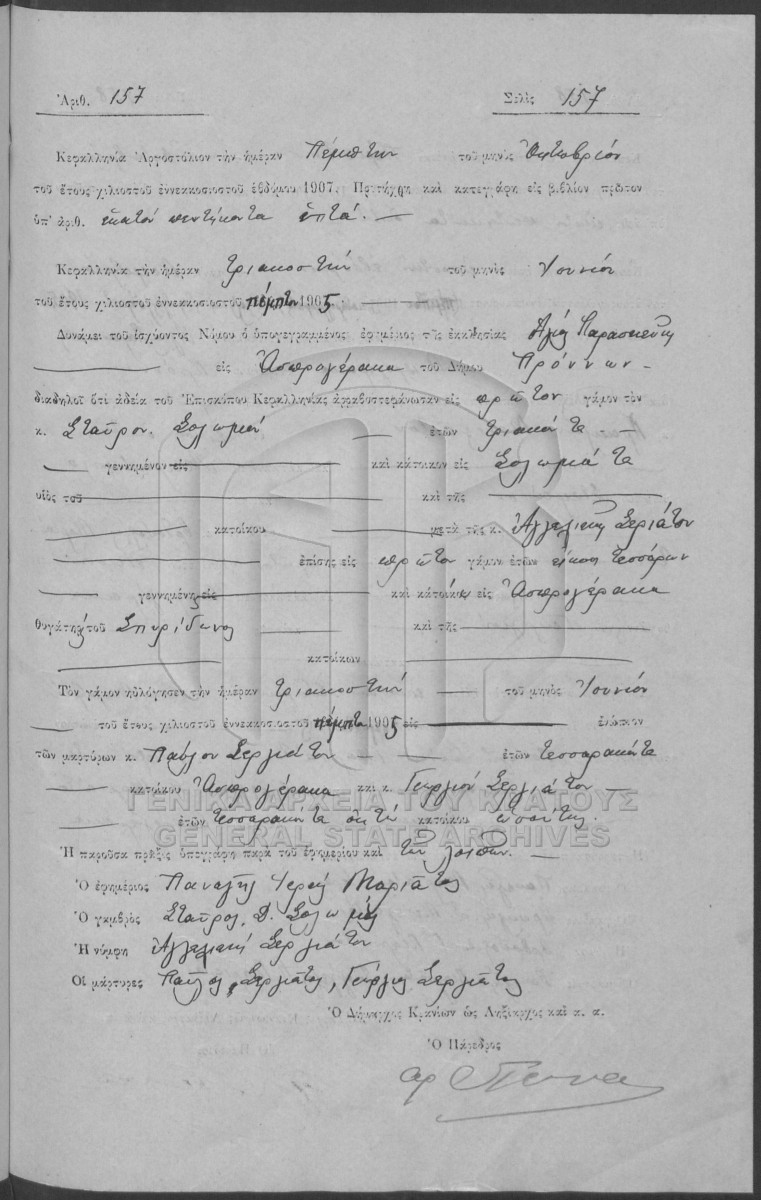 Ἀριθ. 157 Σελὶς 157
Κεφαλληνία Ἀργοστόλιον τὴν ἡμέραν Πέμπτην τοῦ μηνὸς Ὀκτωβρίου
τοῦ ἔτους χιλιοστοῦ ἐννεακοσιοστοῦ ἑβδόμου 1907. Πρωτήχθη καὶ κατεγράφη εἰς βιβλίον πρῶτον
ὑπ' ἀριθ. ἑκατὸν πεντήκοντα ἑπτά. —
Κεφαλληνία τὴν ἡμέραν τριακοστὴν τοῦ μηνὸς Ἰουνίου
τοῦ ἔτους χιλιοστοῦ ἐννεακοσιοστοῦ πέμπτου 1905. —
Δυνάμει τοῦ ἰσχύοντος Νόμου ὁ ὑπογεγραμμένος ἐφημέριος τῆς ἐκκλησίας Ἁγίας Παρασκευῆς
εἰς Ἀσπρογέρακα τοῦ Δήμου Πρόννων —
διαδηλοῖ ὅτι ἀδείᾳ τοῦ Ἐπισκόπου Κεφαλληνίας ἀρραβοστεφάνωσεν εἰς πρῶτον γάμον τὸν
κ. Σταῦρον Σολωμὸν — ἐτῶν τριάκοντα —
γεννημένον εἰς — καὶ κάτοικον εἰς Σολωμάτα
υἱὸς τοῦ — καὶ τῆς —
— κατοίκου — μετὰ τῆς κ. Ἀγγελικῆς Σεργιάτου
— ἐπίσης εἰς πρῶτον γάμον ἐτῶν εἴκοσι τεσσάρων
— γεννημένης εἰς — καὶ κάτοικον εἰς Ἀσπρογέρακα
θυγάτηρ τοῦ Σπυρίδωνος — καὶ τῆς —
— κατοίκων —
Τὸν γάμον ηὐλόγησεν τὴν ἡμέραν τριακοστὴν — τοῦ μηνὸς Ἰουνίου
— τοῦ ἔτους χιλιοστοῦ ἐννεακοσιοστοῦ πέμπτου 1905 εἰς — ἐνώπιον
τῶν μαρτύρων κ. Παύλου Σεργιάτου — ἐτῶν τεσσαράκοντα
— κατοίκου Ἀσπρογέρακα καὶ κ. Γεωργίου Σεργιάτου —
— ἐτῶν τεσσαράκοντα ὀκτὼ κατοίκου ὡσαύτως.
Ἡ παροῦσα πρᾶξις ὑπεγράφη παρὰ τοῦ ἐφημερίου καὶ τῶν λοιπῶν. —
Ὁ ἐφημέριος Παναγῆς Ἱερεὺς Μαριάτος
Ὁ γαμβρὸς Σταῦρος Δ. Σολωμὸς
Ἡ νύμφη Ἀγγελικὴ Σεργιάτου
Οἱ μάρτυρες Παῦλος Σεργιάτος, Γεώργιος Σεργιάτος
Ὁ Δήμαρχος Κρανίων ὡς Ληξίαρχος καὶ κ. α.
Ὁ Πάρεδρος
ΓΕΝΙΚΑ ΑΡΧΕΙΑ ΤΟΥ ΚΡΑΤΟΥΣ
GENERAL STATE ARCHIVES